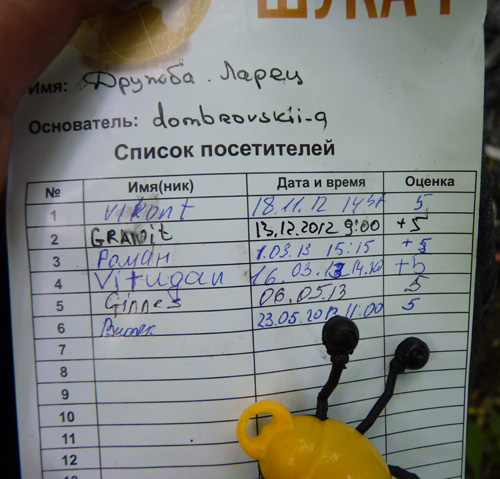 ШУКА
Имя: Дружба. Ларец
Основатель: dombrovskii-g
Список посетителей
№ Имя(ник) Дата и время Оценка
1 vikont 18.11.12 5
2 GRANit 13.12.2012 9:00 +5
3 Роман 1.03.13 15:15 +5
4 Vitugan 16.03.13 +5
5 Ginnes 06.05.13 5
6 Витек 23.05.2013 11:00 5
7
8
9
10
11
12